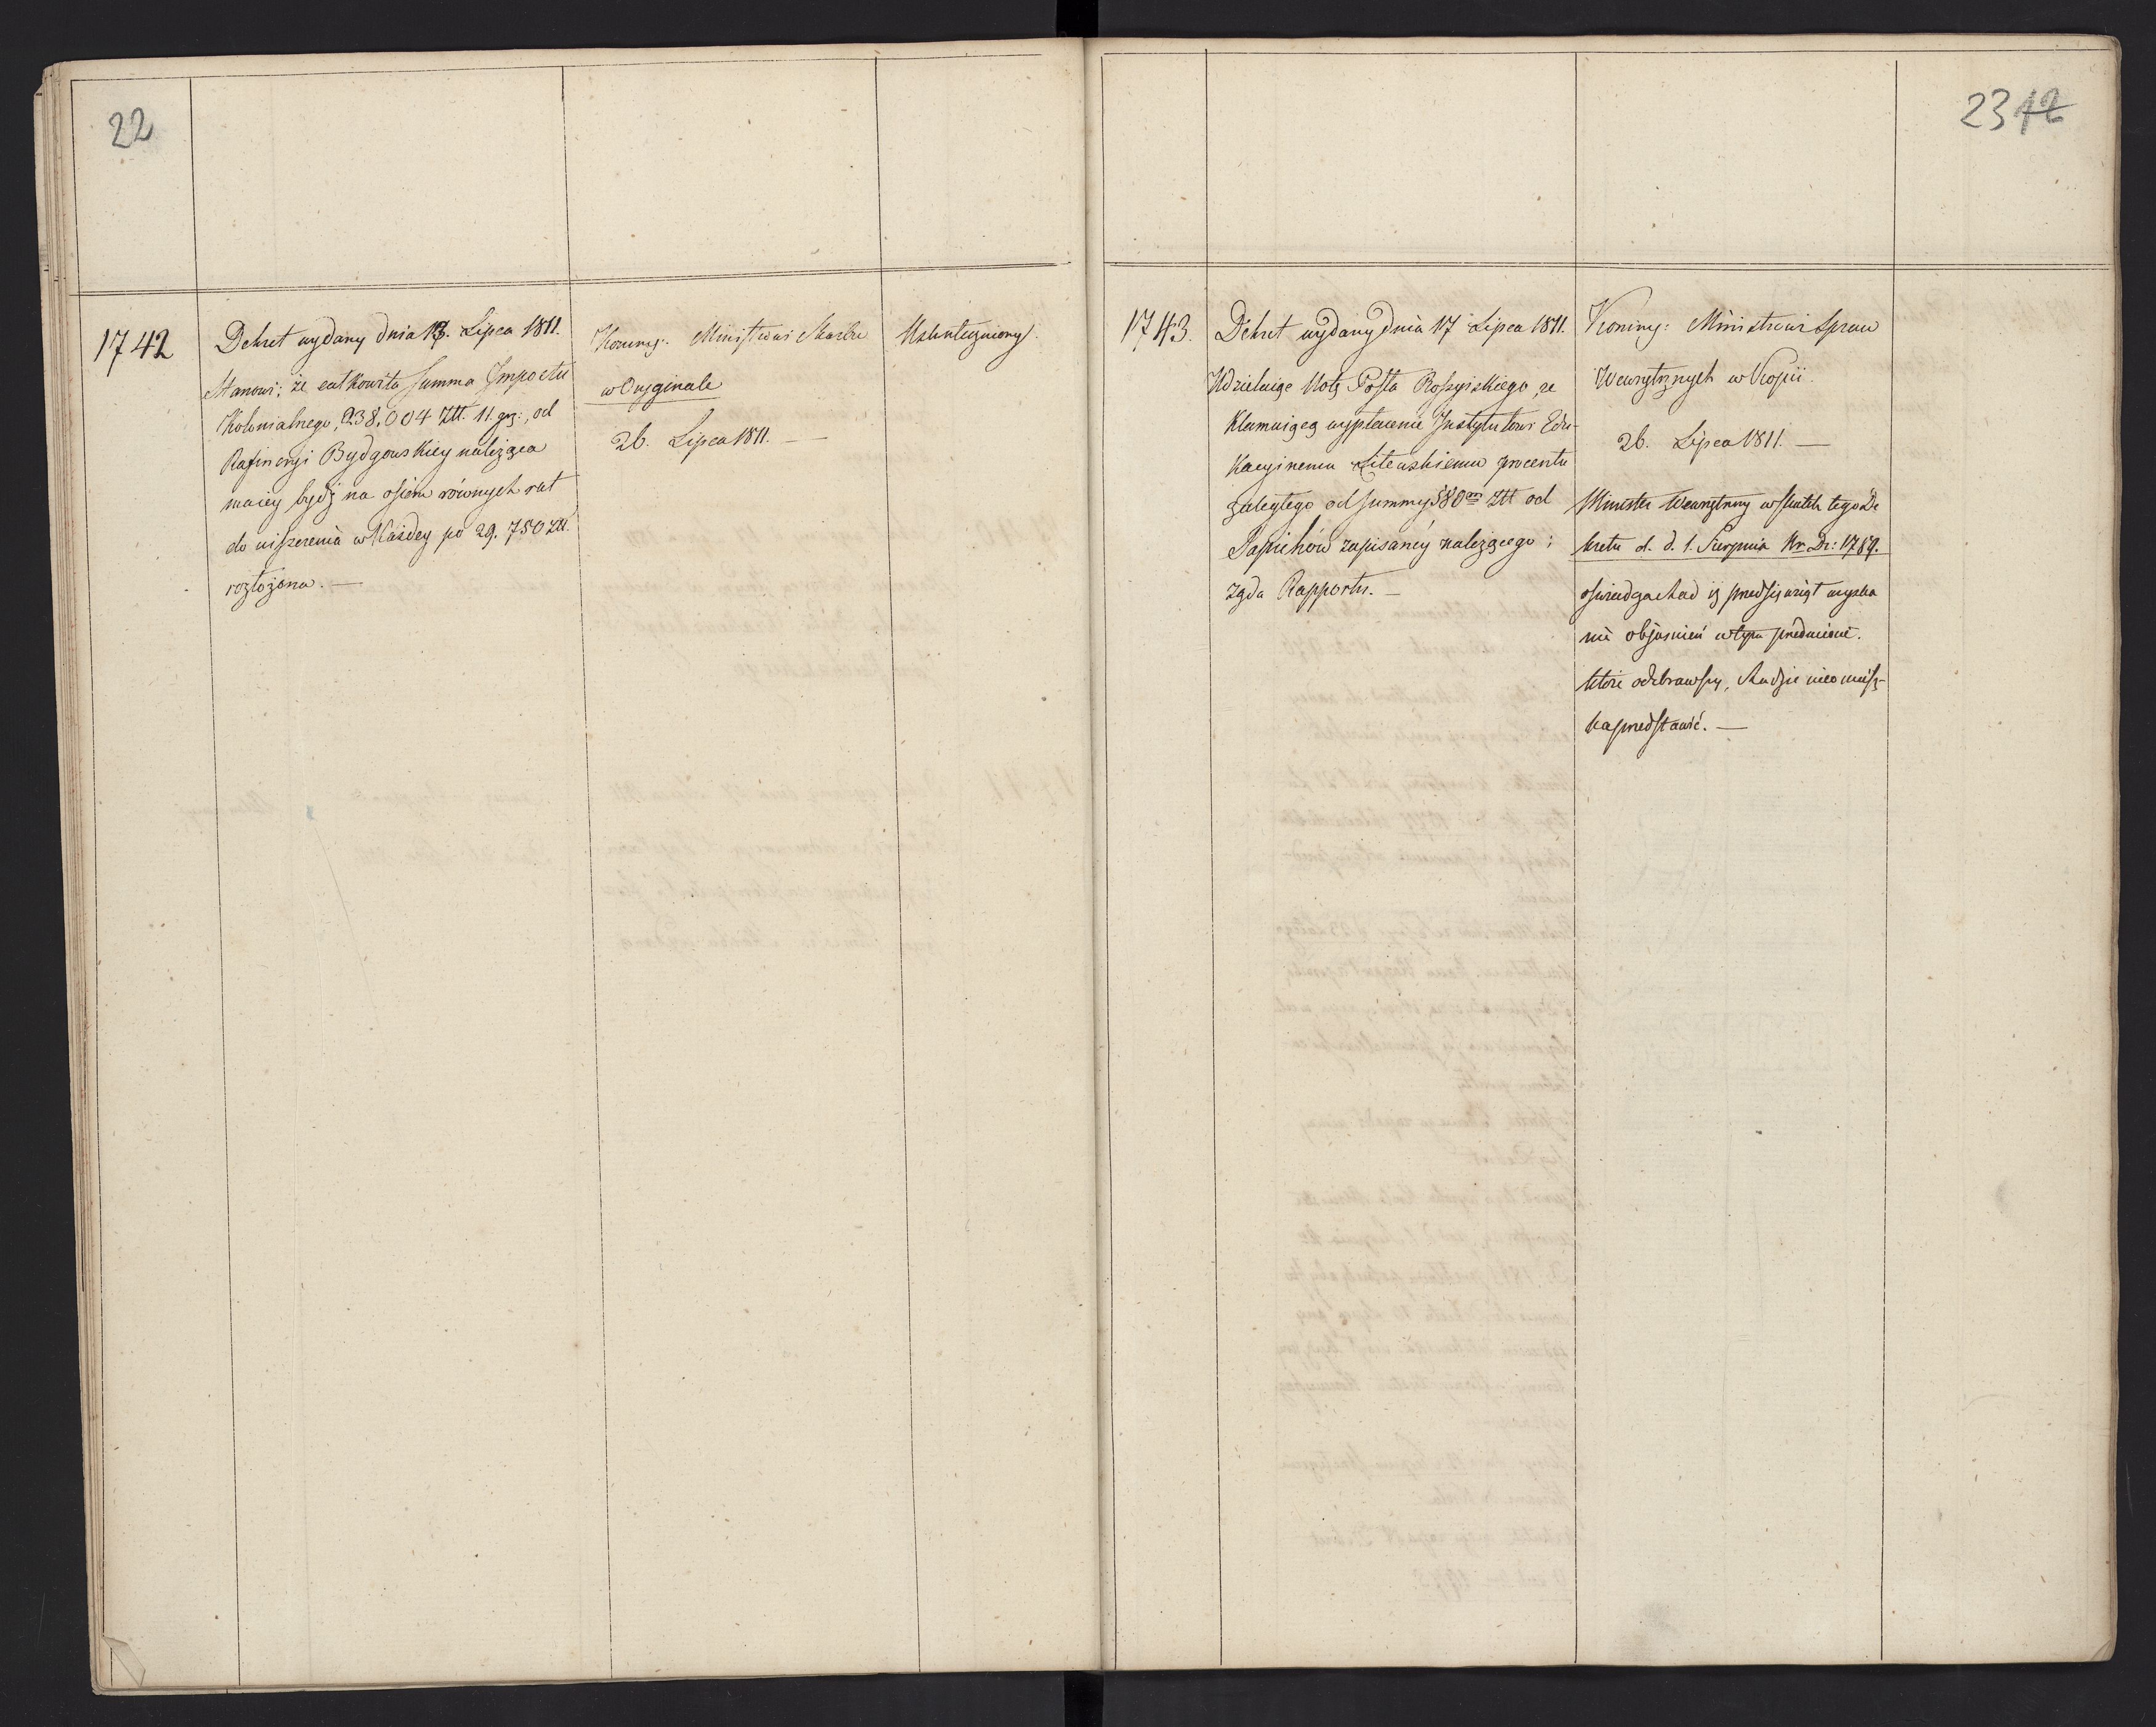 22
1742
Dekret wydany dnia 13. Lipca 1811.
Stanowi: że całkowita summa Impostu
Kolonialnego, 238,004 Złł. 11. gr:, od
Rafineryi Bydgowskiey należąca
maiey bydź na osiem równych rat
do uiszczenia w Każdey po 29,750 Złł.
rozłożona. —
Kommu: Ministrowi Skarbu
w Oryginale
26. Lipca 1811. —
Uskuteczniony.
23 12
1743.
Dekret wydany dnia 17 Lipca 1811.
Udzielaiąc Notę Posła Rossyiskiego, re
klamuiącą wypłacenie Instytutowi Edu-
kacyinemu Litewskiemu procentu
zaległego od summy 580m Złł od
Sapiehów zapisanéy należącego;
żąda Rapportu. —
Kommu: Ministrowi Spraw
Wewnętrznych w Kopii.
26. Lipca 1811. —
Minister Wewnętrzny w skutek tego De
kretu d. d. 1. Sierpnia Nr. Dz: 1789.
oświadcza iż przedsięwziął wyszuka
nie obiaśnień w tym przedmiocie.
które odebrawszy, Radzie nieomiesz-
ka przedstawić. —